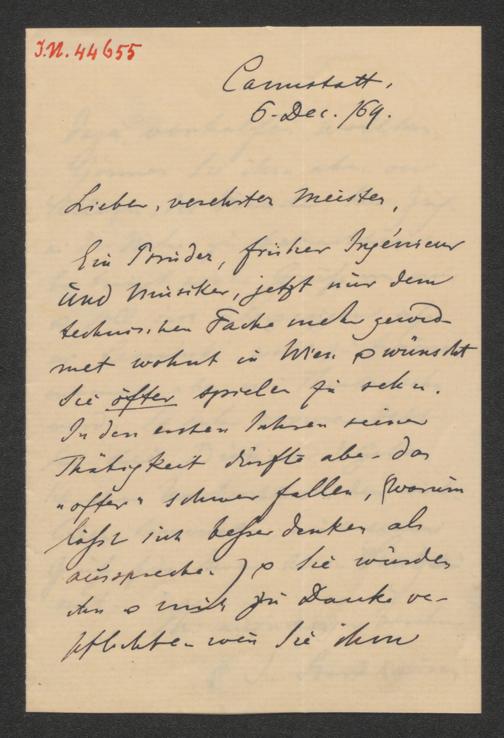 I.N. 44655
Cannstatt,
6. Dec. /69.
Lieber, verehrter Meister,
Ein Bruder, früher Ingénieur
und Musiker, jetzt nur dem
technischen Fache mehr gewid-
met wohnt in Wien & wünscht
Sie öfter spielen zu sehn.
In den ersten Jahren seiner
Thätigkeit dürfte aber das
"öfter" schwer fallen, (warum
läßt sich beßer denken als
aussprechen) & Sie würden
ihn & mich zu Danke ver-
pflichten wenn Sie ihm